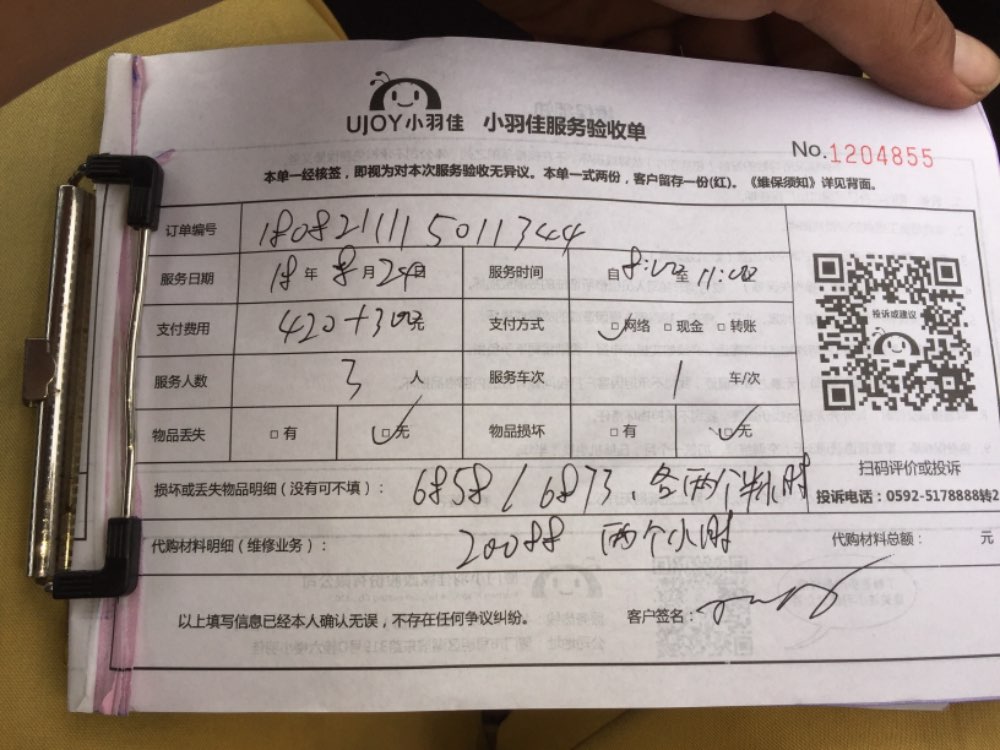 UJOY小羽佳 小羽佳服务验收单
No.1204855
本单一经核签，即视为对本次服务验收无异议。本单一式两份，客户留存一份(红)。《维保须知》详见背面。
订单编号 180821111 5011344
服务日期 18 年 8 月 24 日 服务时间 自 8:00 至 11:00
支付费用 420+300元 支付方式 □网络 □现金 □转账
服务人数 3 人 服务车次 1 车/次
物品丢失 □有 □无 物品损坏 □有 □无
投诉或建议
扫码评价或投诉
投诉电话：0592-5178888转2
损坏或丢失物品明细（没有可不填）： 6858/6873、各两个半小时
代购材料明细（维修业务）： 20088 两个小时 代购材料总额： 元
以上填写信息已经本人确认无误，不存在任何争议纠纷。 客户签名：